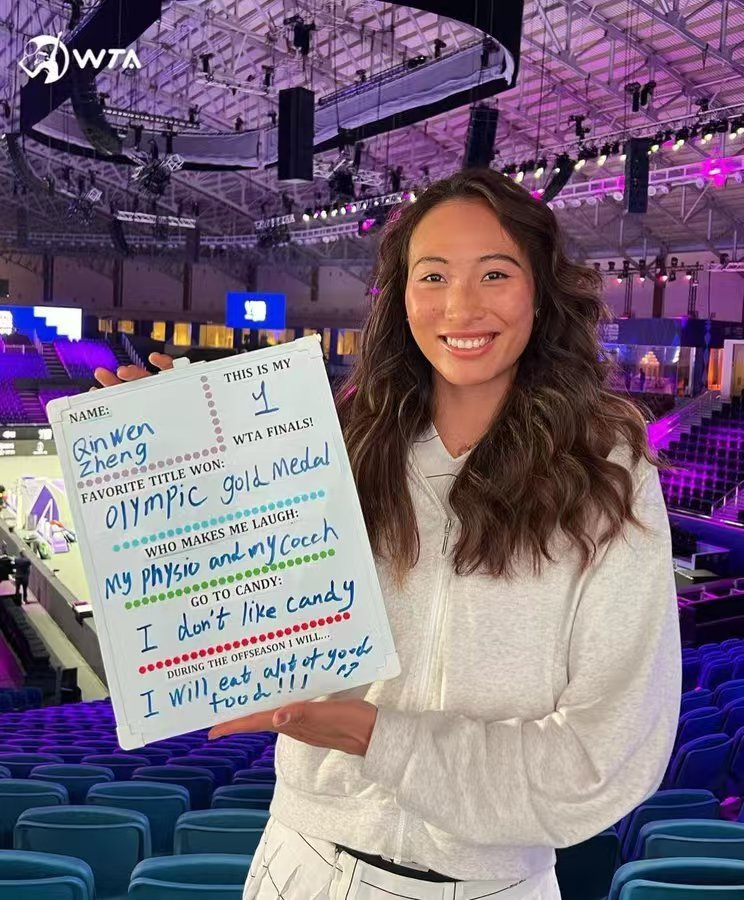 WTA
NAME:
QinWen
Zheng
THIS IS MY
1
WTA FINALS!
FAVORITE TITLE WON:
Olympic gold Medal
WHO MAKES ME LAUGH:
My physio and my Coach
GO TO CANDY:
I don't like candy
DURING THE OFFSEASON I WILL...
I will eat alot of good
food!!!